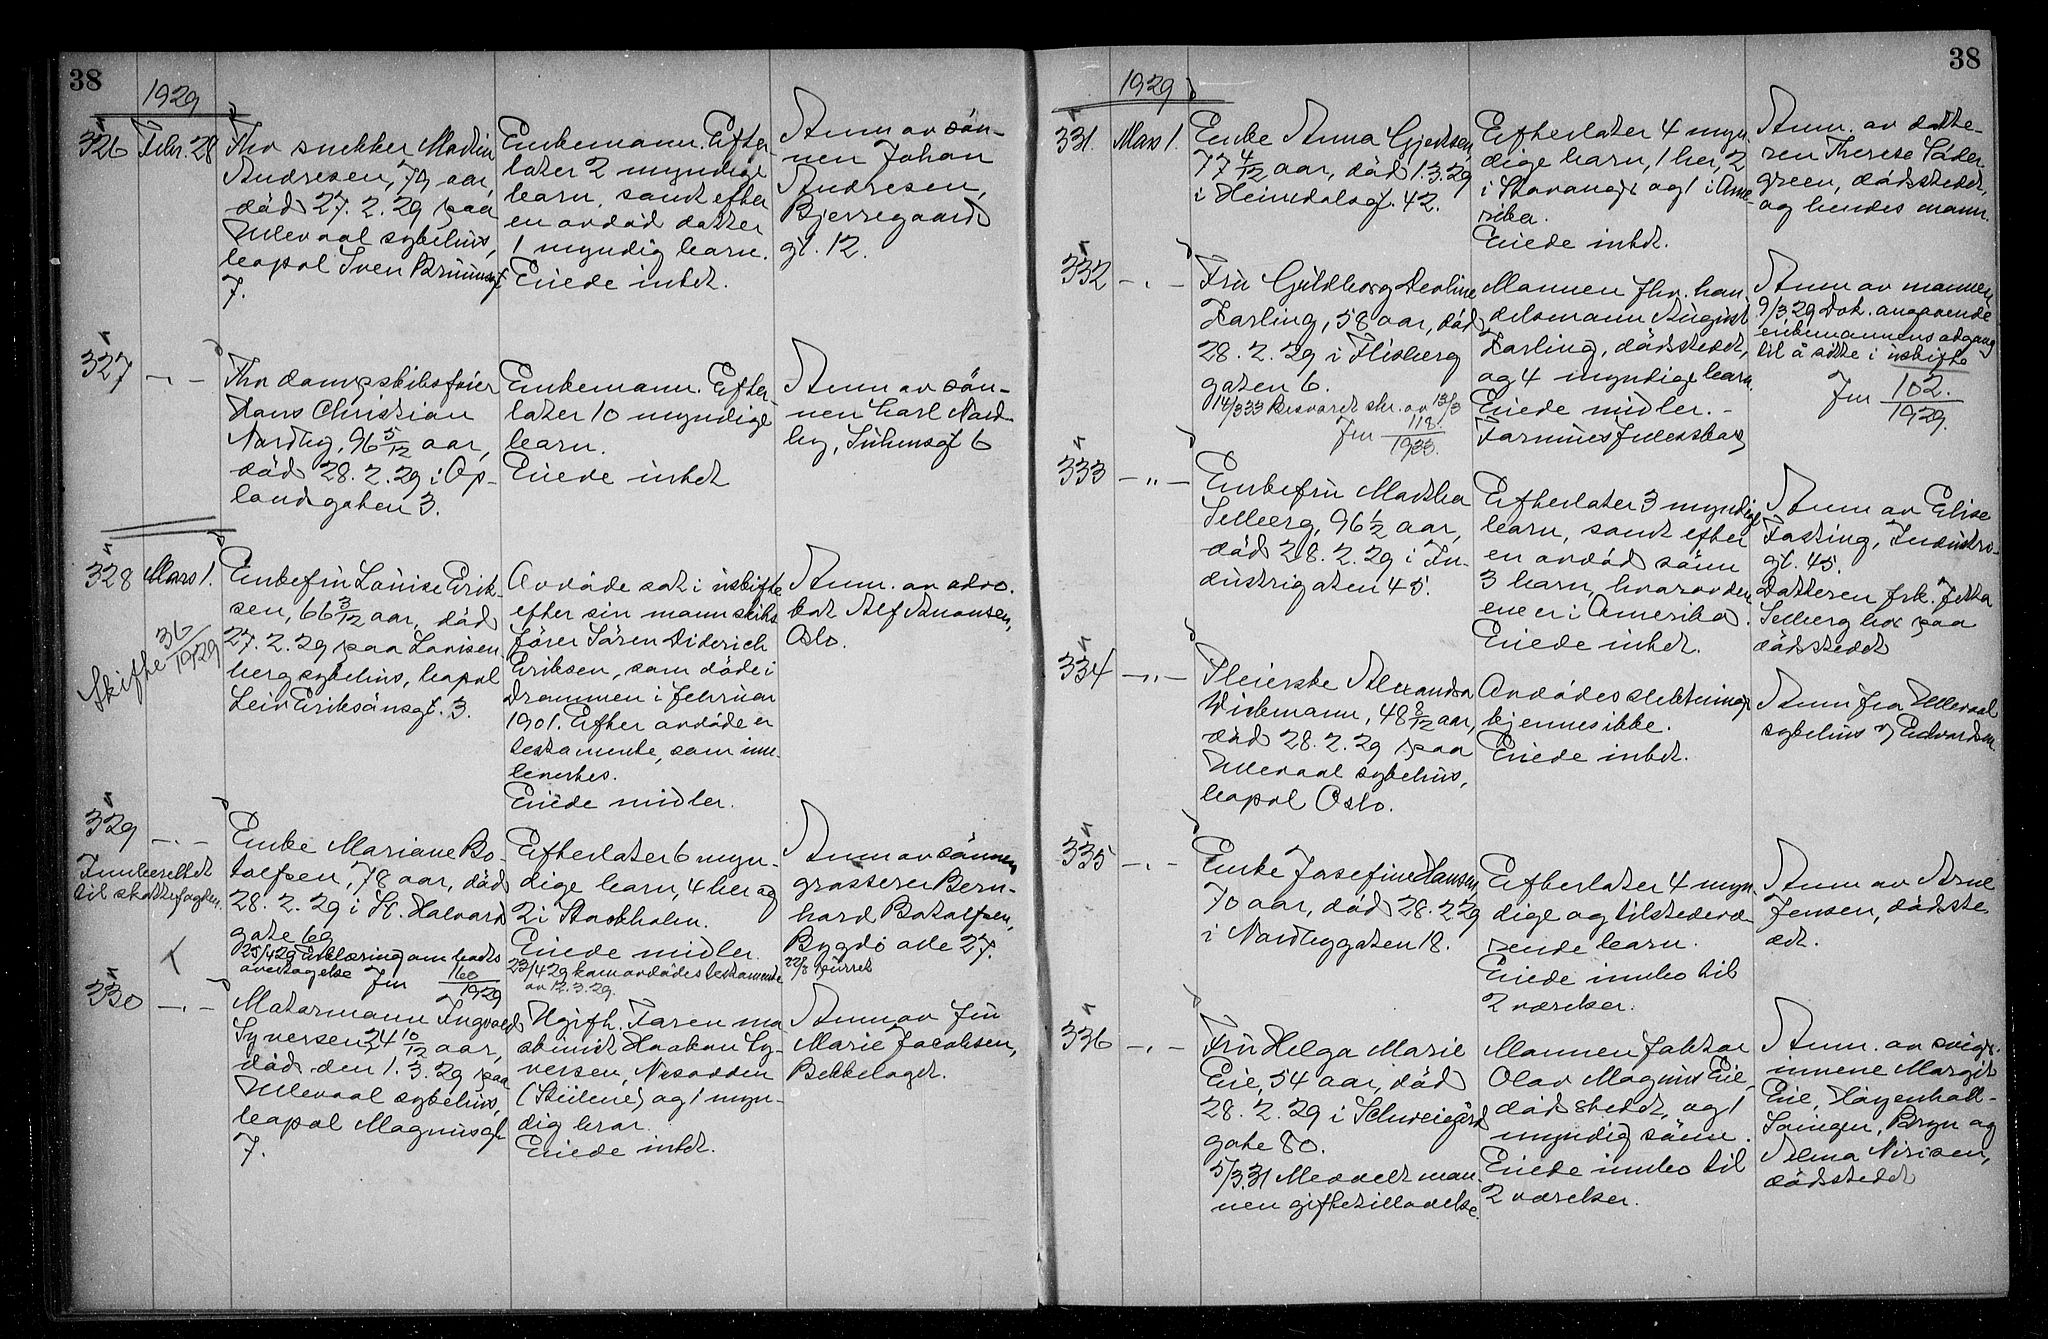 38
1929
326 Febr. 28
Fhv snekker Martin
Andresen, 79 aar,
död 27. 2. 29 paa
Ullevaal sykehus,
bopæl Sven Bruunsgt
7.
Enkemann. Efter-
later 2 myndige
barn, samt efter
en avdöd datter
1 myndig barn.
Eiede intet.
Anm av søn-
nen Johan
Andresen,
Bjerregaards
gt. 12.
327 -"-
Fhv dampskibsfører
Hans Christian
Nordby, 96 5/12 aar,
död 28. 2. 29 i Op-
landsgaten 3.
Enkemann. Efter-
later 10 myndige
barn.
Eiede intet
Anm av søn-
nen Carl Nord-
by, Suhmsgt 6
328 Mars 1.
Skifte 36/1929
Enkefru Louise Erik-
sen, 66 3/12 aar, död
27. 2. 29 paa Lovisen-
berg sykehus, bopæl
Leiv Eriksönsgt. 3.
Avdöde sat i uskifte
efter sin mann skibs-
förer Sören Diderich
Eriksen, som döde i
Drammen i februar
1901. Efter avdöde er
testamente, som inn-
levertes.
Eiede midler.
Anm. av advo-
kat Alf Amonsen,
Oslo.
329 -"-
Innberettet
til skattefogden.
Enke Mariane Bo-
tolfsen, 78 aar, död
28. 2. 29 i St. Halvards
gate 69
25/4 29 Erklæring om boets
overtagelse Jnr 160/1929
Efterlater 6 myn-
dige barn, 4 her og
2 i Stockholm.
Eiede midler.
23/4 29 kom avdödes testamente
av 12. 3. 29.
Anm av sönnen
grosserer Bern-
hard Botolfsen,
Bygdö alle 27.
22/3 purret
330 -"-
Matarmann Ingvald
Syversen, 24 10/12 aar,
död den 1. 3. 29 paa
Ullevaal sykehus,
bopæl Magnusgt
7.
Ugift. Faren ma-
skinist Haakon Sy-
versen, Nesodden
(Steilene) og 1 myn-
dig bror.
Eiede intet.
Anm av fru
Marie Jacobsen,
Bekkelaget.
38
1929
331. Mars 1.
Enke Anna Gjertsen,
77 4/12 aar, död 1. 3. 29
i Heimdalsgt. 42.
Efterlater 4 myn-
dige barn, 1 her, 2
i Stavanger og 1 i Ame-
rika.
Eiede intet.
Anm. av datte-
ren Therese Söder-
green, dödsstedet,
og hendes mann.
332 -"-
Fru Guldborg Pauline
Farling, 58 aar, död
28. 2. 29 i Flisberg
gaten 6.
14/3 33 Besvaret skr. av 13/3
Jnr 118/1933.
Mannen fhv. han-
delsmann August
Farling, dödsstedet,
og 4 myndige barn.
Eiede midler. -
Formuesfællesskap
Anm av mannen
9/3 29 Dok. angaaende
enkemannens adgang
til å sitte i uskifte
Jnr 102/1929.
333 -"-
Enkefru Martha
Selberg, 96 1/2 aar,
död 28. 2. 29 i In-
dustrigaten 45.
Efterlater 3 myndige
barn, samt efter
en avdöd sönn
3 barn, hvorav den
ene er i Amerika.
Eiede intet.
Anm av Elise
Fasting, Industri-
gt. 45.
Datteren frk. Jetta
Selberg bor paa
dödsstedet
334 -"-
Pleierske Alexandra
Wickmann, 48 8/12 aar,
död 28. 2. 29 paa
Ullevaal sykehus,
bopæl Oslo.
Avdödes slektninger
kjennes ikke.
Eiede intet.
Anm fra Ullevaal
sykehus v/ Edvardsen.
335 -"-
Enke Josefine Hansen,
70 aar, död 28. 2. 29
i Nordbygaten 18.
Efterlater 4 myn-
dige og tilstedevæ-
rende barn.
Eiede innbo til
2 værelser.
Anm av Arne
Jensen, dödsste-
det.
336 -"-
Fru Helga Marie
Eie, 54 aar, död
28. 2. 29 i Schweigårds
gate 80.
5/3. 31 Meddelt man-
nen giftetilladelse.
Mannen faktor
Olav Magnus Eie,
dödsstedet, og 1
myndig sönn.
Eiede innbo til
2 værelser.
Anm. av sviger-
innene Margit
Eie, Höyenhall-
svingen, Bryn og
Selma Nirisen,
dödsstedet